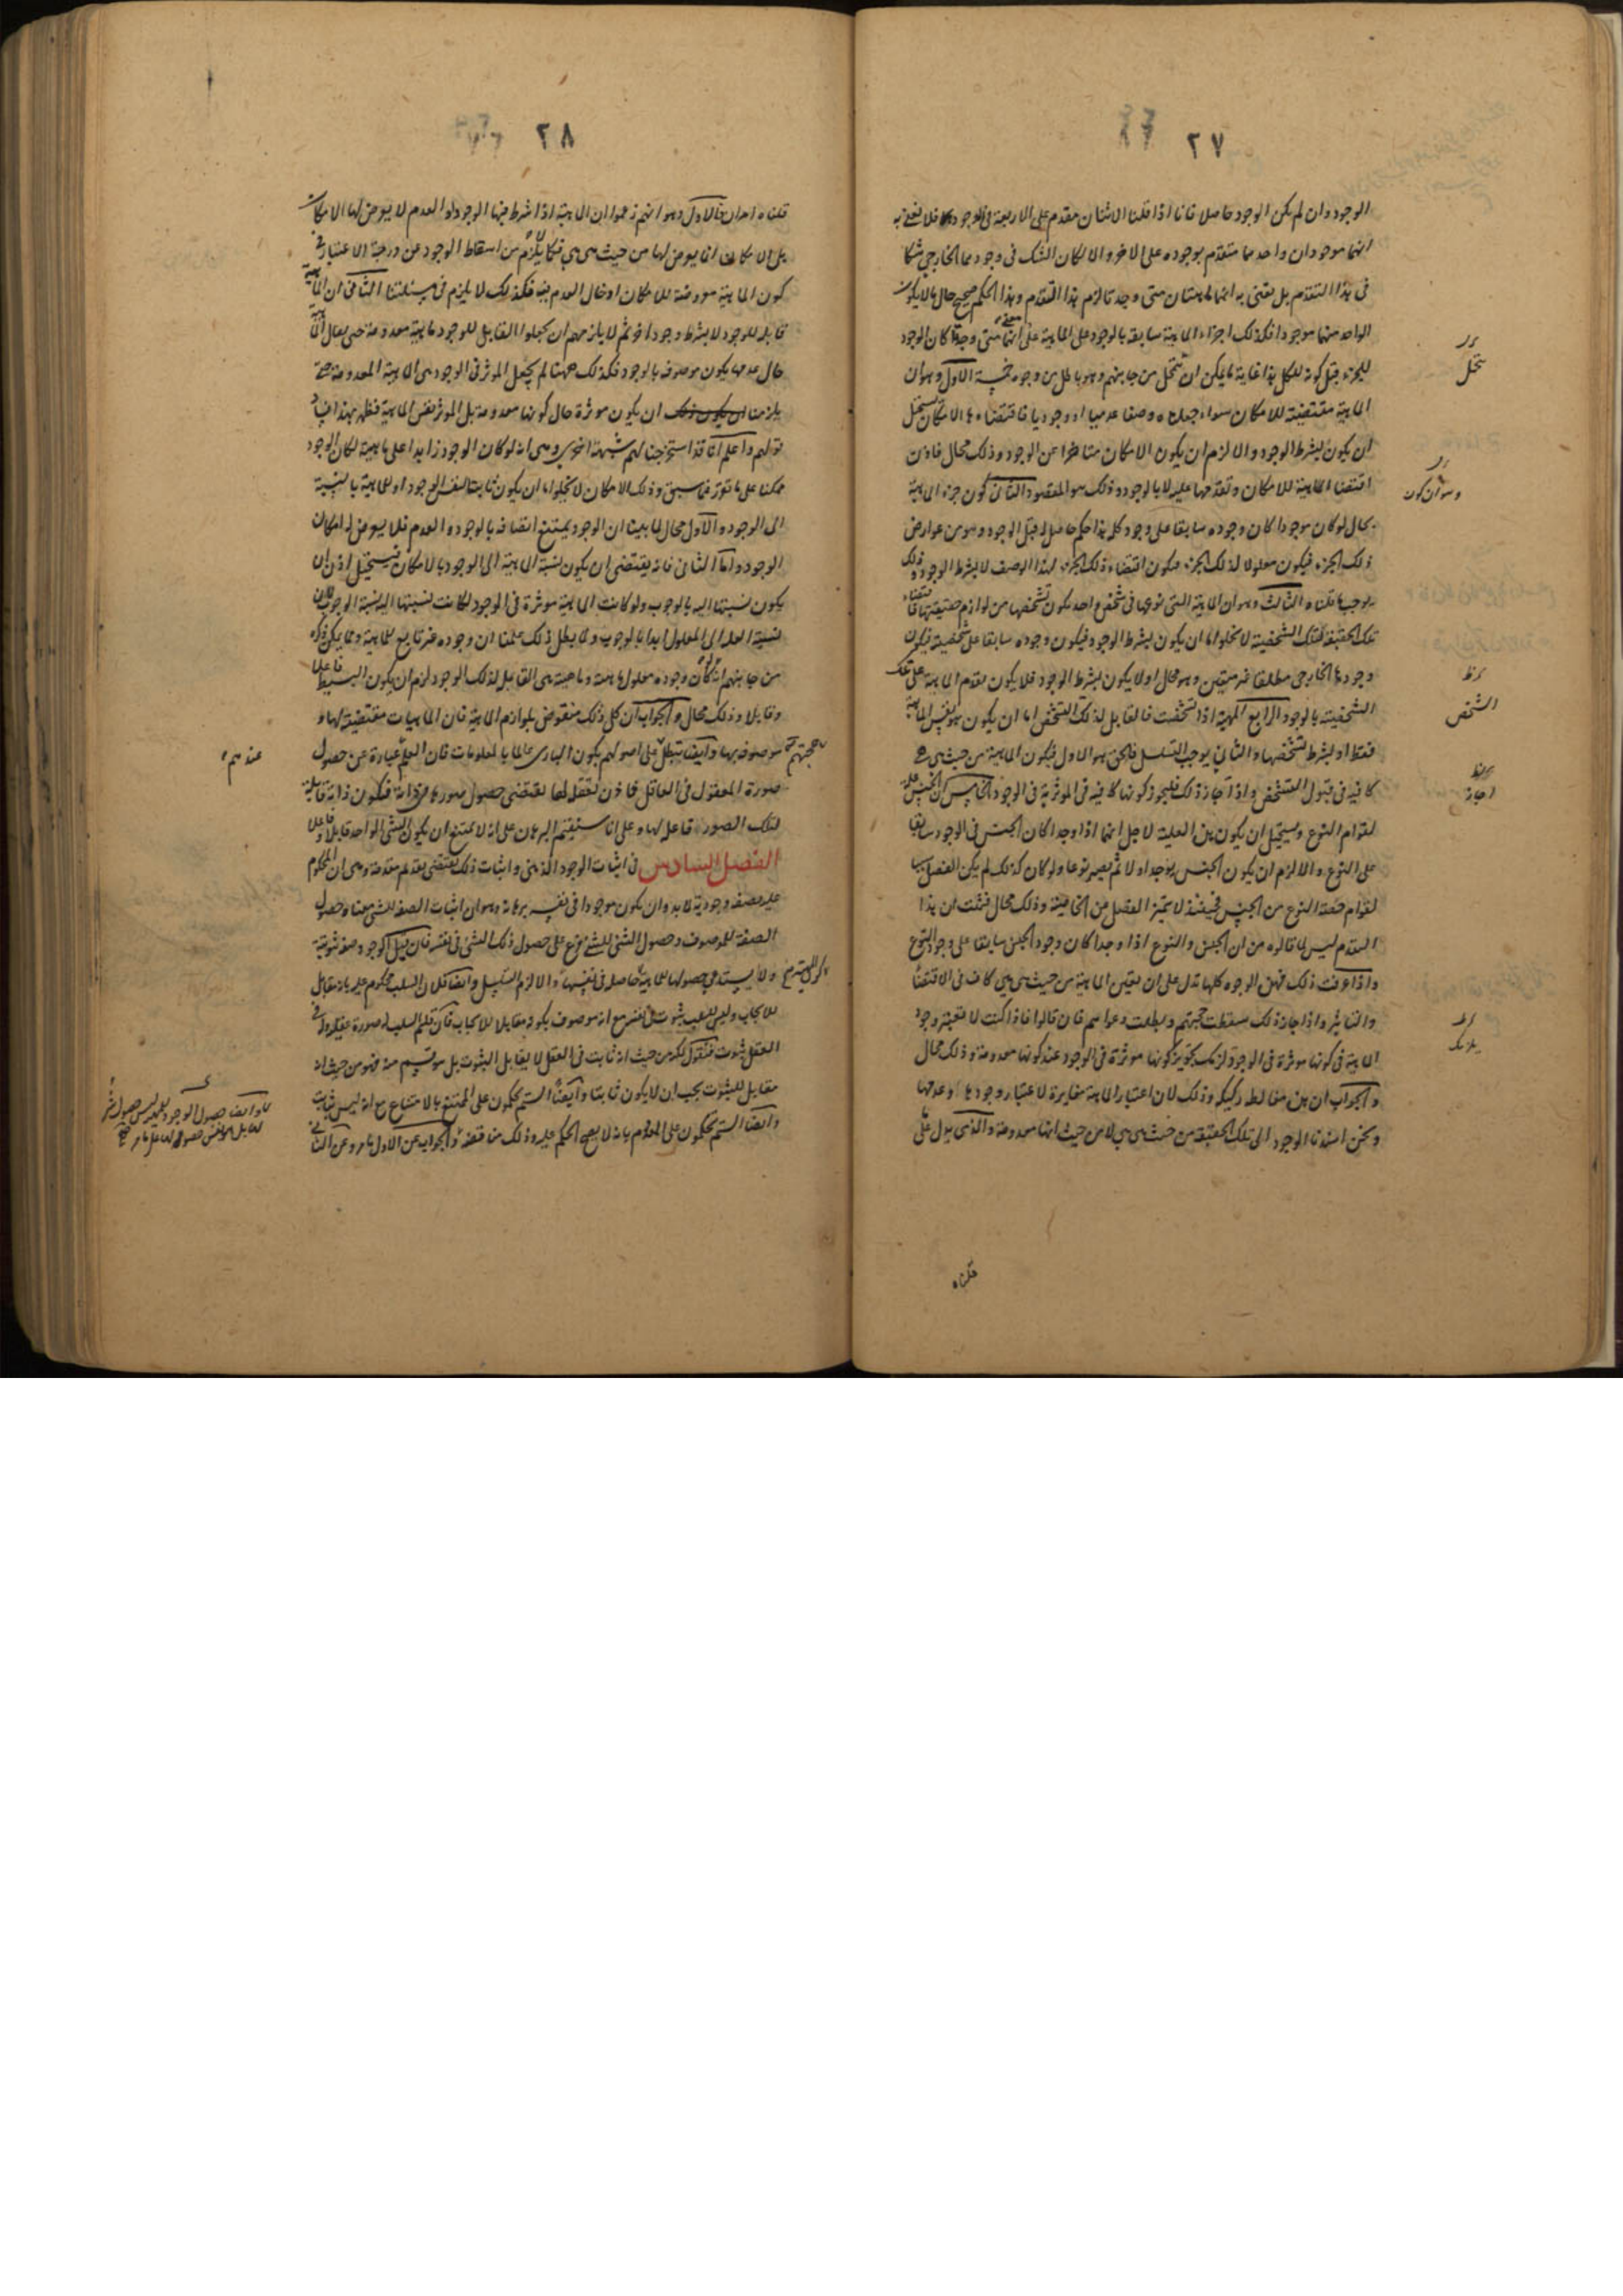 ٢٧
الوجود وان لم يكن الوجود حاصلا فانا اذا قلنا الاثنان مقدم على الاربعة فى الوجود فلا نعنى به
انهما موجودان واحدهما متقدم بوجوده على الاخر والا لكان الشك فى وجودهما الخارجى شكا
فى هذا التقدم بل نعنى به انهما ماهيتان متى وجدتا لزم هذا التقدم وهذا الحكم صحيح حال ما لا يكون
الواحد منهما موجودا فكذلك اجزاء الماهية سابقة بالوجود على الماهية على معنى انهما متى وجدتا كان الوجود
للجزء قبل كونه للكل هذا غاية ما يمكن ان يتمحل من جانبهم وهو باطل من وجوه خمسة الاول وهو ان
الماهية مقتضية للامكان سواء جعلناه وصفا عدميا او وجوديا فاقتضاءها الامكان يستحيل
ان يكون بشرط الوجود والا لزم ان يكون الامكان متاخرا عن الوجود وذلك محال فاذن
اقتضاء الماهية للامكان وتقدمها عليه لا بالوجود وذلك هو المقصود الثانى كون جزء الماهية
بحال لو كان موجودا كان وجوده سابقا على وجود كله هذا حكم حاصل له قبل الوجود وهو من عوارض
ذلك الجزء فيكون معلولا لذلك الجزء فيكون اقتضاء ذلك الجزء لهذا الوصف لا بشرط الوجود وذلك
يوجب ما قلناه الثالث وهو ان الماهية التى نوعها فى شخص احد يكون تشخصها من لوازم حقيقتها فاقتضاء
تلك الحقيقة لتلك الشخصية لا يخلو اما ان يكون بشرط الوجود فيكون وجوده سابقا على شخصيته فيكون
وجودها الخارجى مطلقا غير متعين وهو محال او لا يكون بشرط الوجود فلا يكون تقدم الماهية على تلك
الشخصية بالوجود الرابع المهية اذا تشخصت فالقابل لذلك التشخص اما ان يكون هو نفس الماهية
فقط او بشرط تشخصها والثانى يوجب التسلسل فالحق هو الاول فيكون الماهية من حيث هى هى
كافية فى قبول التشخص واذا جاز ذلك فليجز كونها كافية فى المؤثرية فى الوجود الخامس ان الجنس علة
لقوام النوع ويستحيل ان يكون هذه العلية لاجل انهما اذا وجدا كان الجنس فى الوجود سابقا
على النوع والا لزم ان يكون الجنس يوجد اولا ثم يصير نوعا ولو كان كذلك لم يكن الفصل سببا
لقوام حصة النوع من الجنس فحينئذ لا يتميز الفصل من الخاصة وذلك محال فثبت ان هذا
التقدم ليس لما قالوه من ان الجنس والنوع اذا وجدا كان وجود الجنس سابقا على وجود النوع
واذا عرفت ذلك فهذه الوجوه كلها تدل على ان تعين الماهية من حيث هى هى كاف فى الاقتضاء
والتاثير واذا جاز ذلك سقطت حجتهم وبطلت دعواهم فان قالوا فاذا كنت لا تعتبر وجود
الماهية فى كونها مؤثرة فى الوجود لزمك تجويز كونها مؤثرة فى الوجود عند كونها معدومة وذلك محال
والجواب ان هذه مغالطة ركيكة وذلك لان اعتبار الماهية مغايرة لاعتبار وجودها وعدمها
ونحن اسندنا الوجود الى تلك الحقيقة من حيث هى هى لا من حيث انها معدومة والذى يدل على
قلناه
يتمحل
وهو ان كون
الشخص
اجاز
يلزمك
٢٨
قلناه امران الاول وهو انهم زعموا ان الماهية اذا شرط فيها الوجود او العدم لا يعرض لها الامكان
بل الامكان انما يعرض لها من حيث هى هى فكما لا يلزم من اسقاط الوجود عن درجة الاعتبار فى
كون الماهية معروضة للامكان ادخال العدم فيه فكذلك لا يلزم فى مسئلتنا الثانى ان الماهية
قابلة للوجود لا بشرط وجود اخر ثم لا يلزمهم ان يجعلوا القابل للوجود ماهية معدومة حتى يقال الماهية
حال عدمها يكون موصوفة بالوجود فكذلك ههنا لم يجعل المؤثر فى الوجود هى الماهية المعدومة حتى
يلزمنا ان يكون مؤثرة حال كونها معدومة بل المؤثر نفس الماهية فظهر بهذا فساد
قولهم واعلم انا قد استخرجنا لهم شبهة اخرى وهى انه لو كان الوجود زايدا على ماهيته لكان الوجود
ممكنا على ما تقرر فيما سبق وذلك الامكان لا يخلوا اما ان يكون ثابتا لنفس الوجود او للماهية بالنسبة
الى الوجود والاول محال لما بينا ان الوجود يمتنع اتصافه بالوجود والعدم فلا يعرض له امكان
الوجود واما الثانى فانه يقتضى ان يكون نسبة الماهية الى الوجود بالامكان فيستحيل اذن ان
يكون نسبتها اليه بالوجوب ولو كانت الماهية مؤثرة فى الوجود لكانت نسبتها اليه نسبة الوجوب لان
نسبة العلة الى المعلول ابدا بالوجوب ولما بطل ذلك علمنا ان وجوده غير تابع للماهية ومما يمكن ذكره
من جانبهم انه لو كان وجوده معلول ماهيته وماهيته هى القابل لذلك الوجود لزم ان يكون البسيط فاعلا
وقابلا وذلك محال والجواب ان كل ذلك منقوض بلوازم الماهية فان الماهيات مقتضية لها و
موصوفة بها وايضا تبطل على اصولهم بكون البارى عالما بالمعلومات فان العلم عبارة عن حصول
صورة المعقول فى العاقل فاذن تعقله لها يقتضى حصول صورها فى ذاته فتكون ذاته قابلة
لتلك الصور فاعلة لها وعلى انا سنقيم البرهان على انه لا يمتنع ان يكون الشئ الواحد قابلا وفاعلا
الفصل السادس فى اثبات الوجود الذهنى واثبات ذلك يقتضى تقديم مقدمة وهى ان المحكوم
عليه بصفة وجودية لابد وان يكون موجودا فى نفسه برهانه وهو ان اثبات الصفة للشئ معناه حصول
الصفة للموصوف وحصول الشئ للشئ فرع على حصول ذلك الشئ فى نفسه فان قيل الوجود صفة ثبوتية
ولا يستدعى حصولها للماهية حاصلة فى نفسها والا لزم التسلسل وايضا فلان السلب محكوم عليه بانه مقابل
للايجاب وليس للسلب ثبوت فى نفسه مع انه موصوف بكونه مقابلا للايجاب فان قلتم السلب له صورة عقلية وله فى
العقل ثبوت فنقول لكنه من حيث انه ثابت فى العقل لا يقابل الثبوت بل هو قسم منه فهو من حيث انه
مقابل للثبوت يجب ان لا يكون ثابتا وايضا الستم تحكمون على الممتنع بالامتناع مع انه ليس ثابت
وايضا الستم تحكمون على المعدوم بانه لا يصح الحكم عليه وذلك مناقضة والجواب عن الاول ما مر وعن الثانى
حجتهم
عندهم